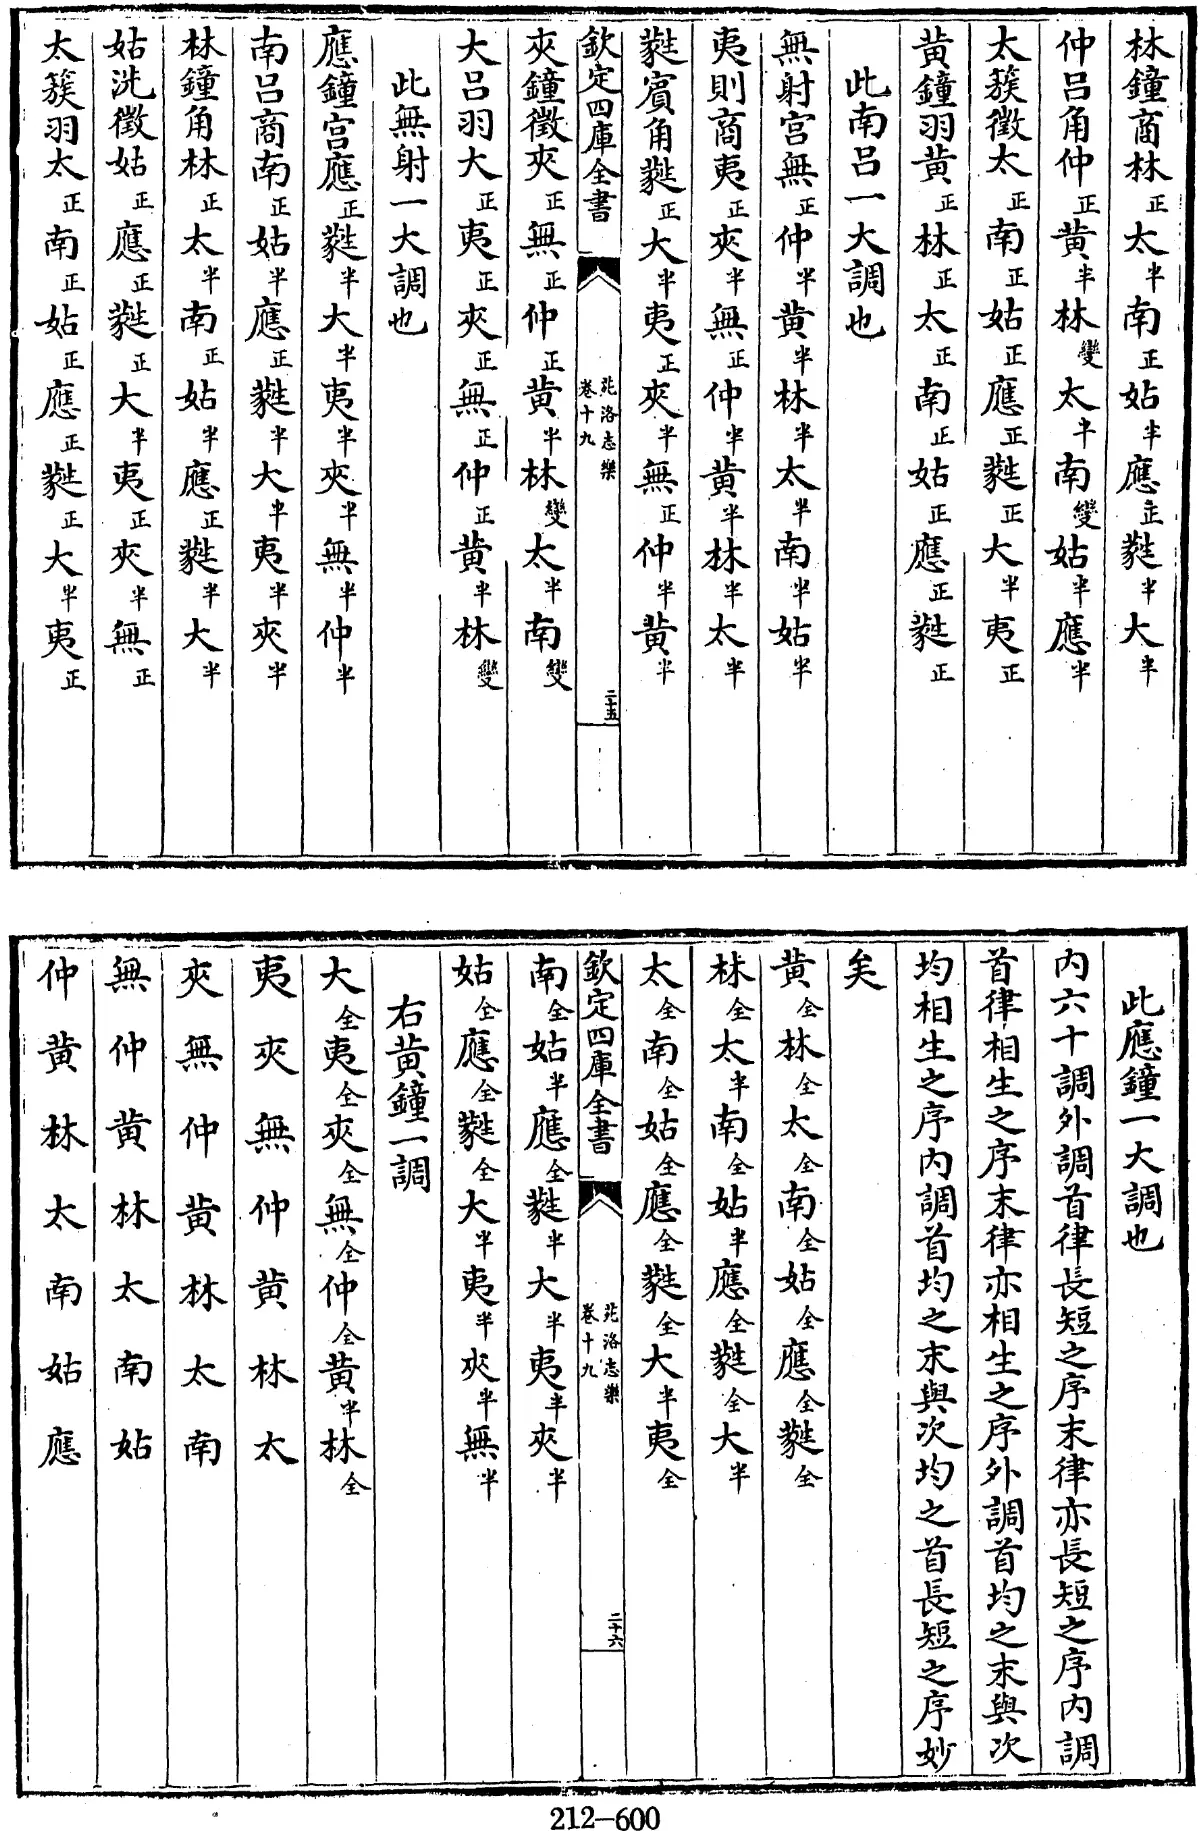 林鐘商林正太半南正姑半應正蕤半大半
仲呂角仲正黃半林變太半南變姑半應半
太簇徵太正南正姑正應正蕤正大半夷正
黃鐘羽黃正林正太正南正姑正應正蕤正
此南呂一大調也
無射宮無正仲半黃半林半太半南半姑半
夷則商夷正夾半無正仲半黃半林半太半
蕤賔角蕤正大半夷正夾半無正仲半黃半
欽定四庫全書
苑洛志樂
卷十九
二十五
夾鐘徵夾正無正仲正黃半林變太半南變
大呂羽大正夷正夾正無正仲正黃半林變
此無射一大調也
應鐘宮應正蕤半大半夷半夾半無半仲半
南呂商南正姑半應正蕤半大半夷半夾半
林鐘角林正太半南正姑半應正蕤半大半
姑洗徵姑正應正蕤正大半夷正夾半無正
太簇羽太正南正姑正應正蕤正大半夷正
此應鐘一大調也
內六十調外調首律長短之序末律亦長短之序內調
首律相生之序末律亦相生之序外調首均之末與次
均相生之序內調首均之末與次均之首長短之序妙
矣
黃全林全太全南全姑全應全蕤全
林全太半南全姑半應全蕤全大半
太全南全姑全應全蕤全大半夷全
欽定四庫全書
苑洛志樂
卷十九
二十六
南全姑半應全蕤半大半夷半夾半
姑全應全蕤全大半夷半夾半無半
右黃鐘一調
大全夷全夾全無全仲全黃半林全
夷夾無仲黃林太
夾無仲黃林太南
無仲黃林太南姑
仲黃林太南姑應
212-600